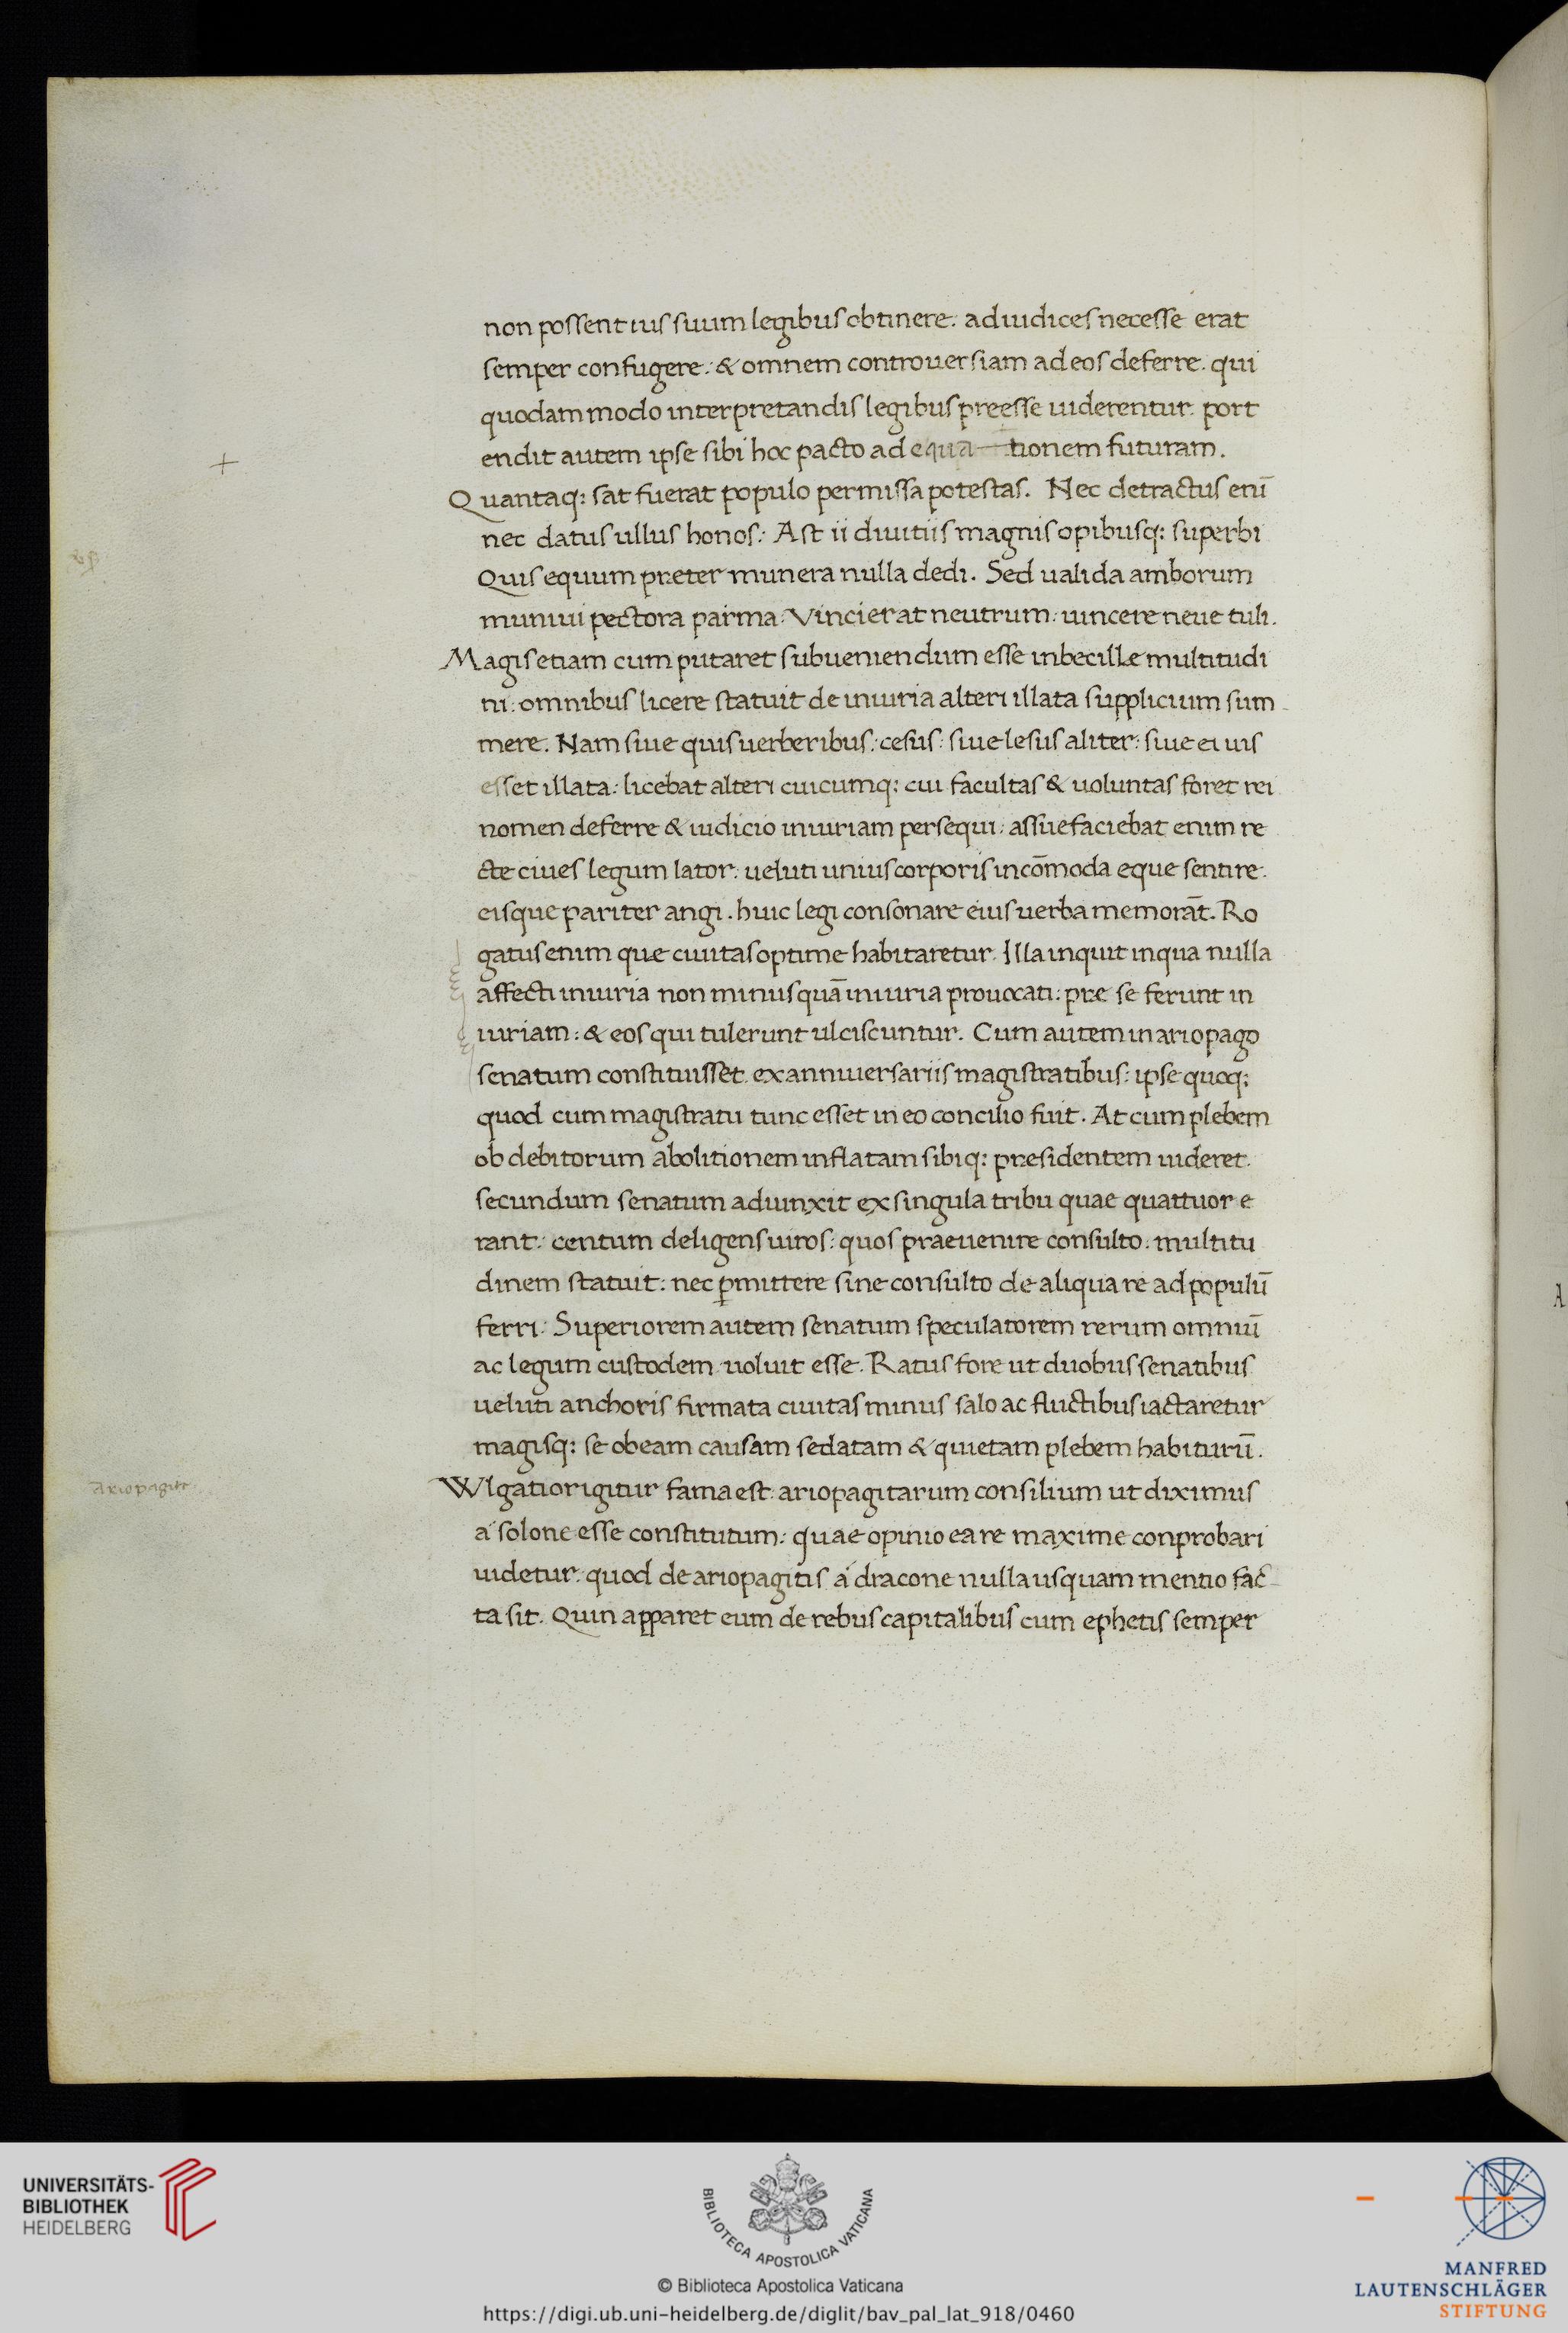 non possent ius suum legibus obtinere: ad iudices necesse erat
semper confugere: & omnem controuersiam ad eos deferre. qui
quodam modo interpretandis legibus preesse uiderentur. port
endit autem ipse sibi hoc pacto adequa—tionem futuram.
Quantaq: sat fuerat populo permissa potestas. Nec detractus enī
nec datus ullus honos: Ast ii diuitiis magnis opibusq: superbi
Quis equum preter munera nulla dedi. Sed ualida amborum
muniui pectora parma: Vinci erat neutrum: uincere neue tuli.
Magis etiam cum putaret subueniendum esse inbecille multitudi
ni: omnibus licere statuit de iniuria alteri illata supplicium sum
mere. Nam siue quis uerberibus: cesus: siue lesus aliter: siue ei uis
esset illata: licebat alteri cuicumq: cui facultas & uoluntas foret rei
nomen deferre & iudicio iniuriam persequi: assuefaciebat enim re
cte ciues legum lator: ueluti unius corporis incōmoda eque sentire.
eisque pariter angi. huic legi consonare eius uerba memorāt. Ro
gatus enim que ciuitas optime habitaretur. Illa inquit in qua nulla
affecti iniuria non minus quā iniuria prouocati: pre se ferunt in
iuriam: & eos qui tulerunt ulciscuntur. Cum autem in ariopago
senatum constituisset ex anniuersariis magistratibus: ipse quoq:
quod cum magistratu tunc esset in eo concilio fuit. At cum plebem
ob debitorum abolitionem inflatam sibiq: presidentem uideret.
secundum senatum adiunxit ex singula tribu quae quattuor e
rant: centum deligens uiros: quos praeuenire consulto: multitu
dinem statuit: nec p̱mittere sine consulto de aliqua re ad populū
ferri: Superiorem autem senatum speculatorem rerum omniū
ac legum custodem uoluit esse. Ratus fore ut duobus senatibus
ueluti anchoris firmata ciuitas minus salo ac fluctibus iactaretur
magisq: se ob eam causam sedatam & quietam plebem habiturū.
Ariopagite
Wlgatior igitur fama est: ariopagitarum consilium ut diximus
á solone esse constitutum: quae opinio ea re maxime conprobari
uidetur: quod de ariopagitis á dracone nulla usquam mentio fac
ta sit. Quin apparet eum de rebus capitalibus cum ephetis semper
UNIVERSITÄTS-
BIBLIOTHEK
HEIDELBERG
BIBLIOTECA APOSTOLICA VATICANA
© Biblioteca Apostolica Vaticana
https://digi.ub.uni-heidelberg.de/diglit/bav_pal_lat_918/0460
MANFRED
LAUTENSCHLÄGER
STIFTUNG